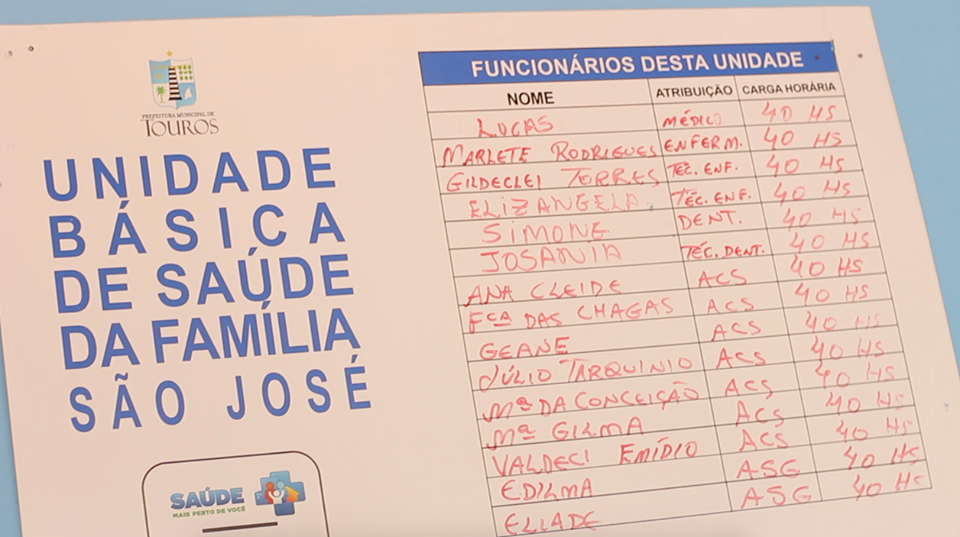 PREFEITURA MUNICIPAL DE
TOUROS
UNIDADE
BÁSICA
DE SAÚDE
DA FAMÍLIA
SÃO JOSÉ
SAÚDE
MAIS PERTO DE VOCÊ
FUNCIONÁRIOS DESTA UNIDADE
NOME ATRIBUIÇÃO CARGA HORÁRIA
LUCAS MÉDICO 40 HS
MARLETE RODRIGUES ENFERM. 40 HS
GILDECLEI TORRES TÉC. ENF. 40 HS
ELIZANGELA TÉC. ENF. 40 HS
SIMONE DENT. 40 HS
JOSANIA TÉC. DENT. 40 HS
ANA CLEIDE ACS 40 HS
Fᶜᵃ DAS CHAGAS ACS 40 HS
GEANE ACS 40 HS
JÚLIO TARQUINIO ACS 40 HS
Mª DA CONCEIÇÃO ACS 40 HS
Mª GILMA ACS 40 HS
VALDECI EMÍDIO ACS 40 HS
EDILMA ASG 40 HS
ELIADE ASG 40 HS